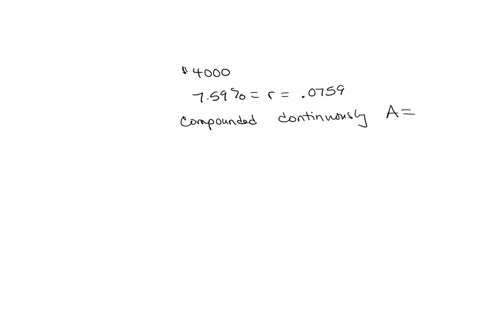 $4000
7.59% = r = .0759
Compounded continuously A=